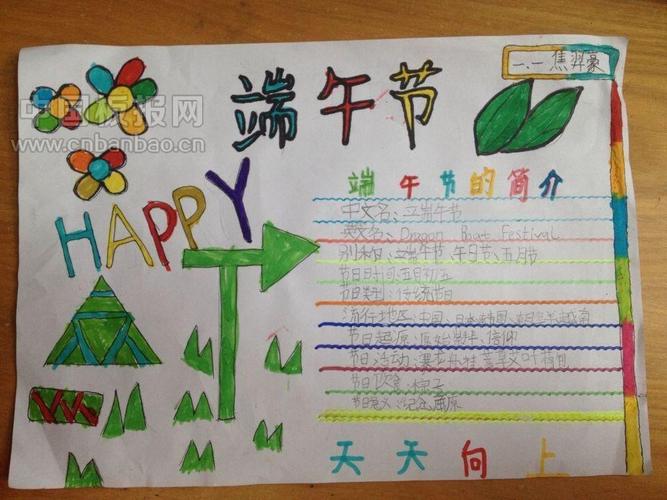 一.一 焦羿豪
端午节
中国板报网
www.cnbanbao.cn
HAPPY
端午节的简介
中文名:端午节
英文名:Dragon Boat Festival
别称:端午节、午日节、五月节
节日时间:五月初五
节日类型:传统节日
流行地区:中国、日本 韩国、越南
节日起源:原始 信仰
节日活动:赛龙舟 挂菖草艾叶 荷包
节日饮食:粽子
节日意义:纪念屈原
天天向上